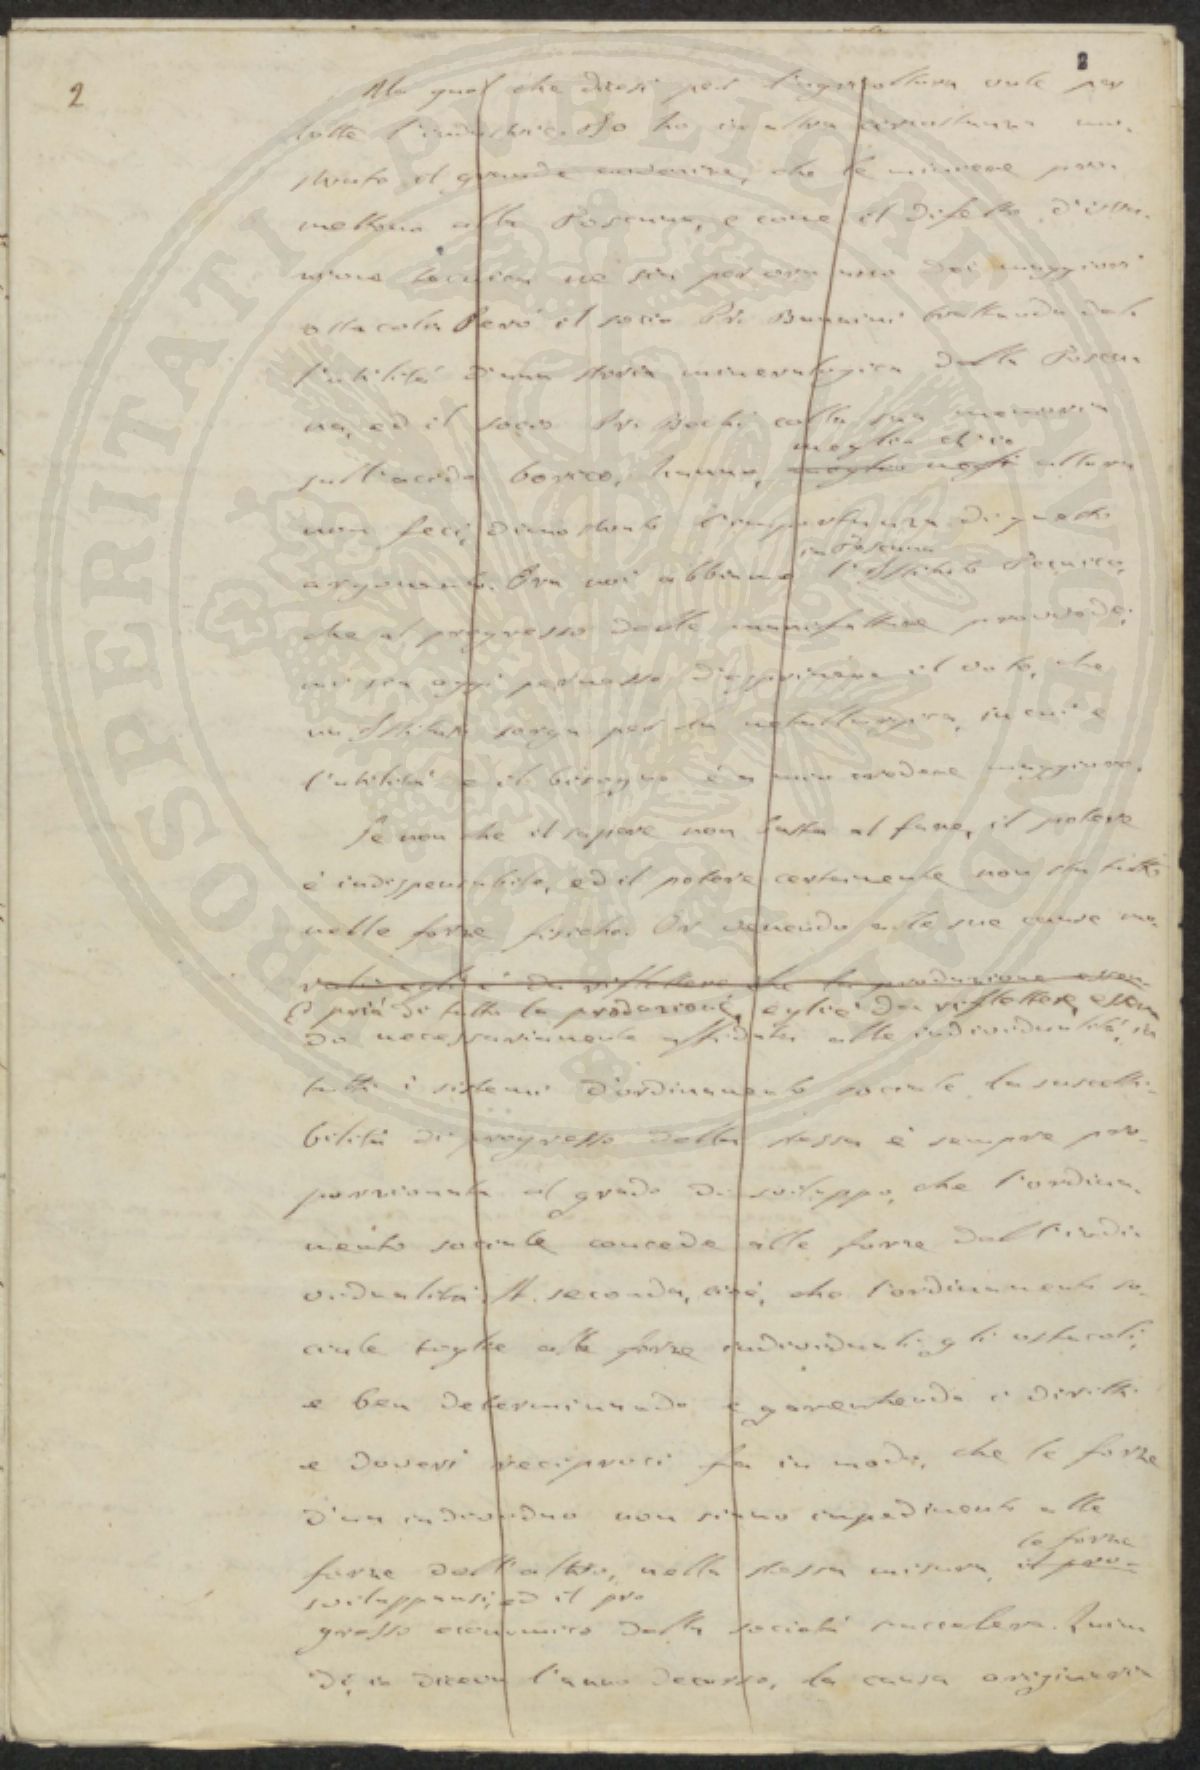 2
8
Ma quel che dicesi per l'agricoltura vale per
tutte l'industrie. Io ho in altra circostanza mo-
strato il grande avvenire, che le miniere prom
mettono alla Toscana, e come il difetto d'istru-
zione tecnica ne sia per ora uno dei maggiori
ostacoli. Però il socio Pr. Bunnini trattando del-
l'utilità d'una storia mineralogica della Tosca
na, ed il socio Pr. Bechi colla sua memoria
meglio ch'io
sull'acido borico, hanno, meglio allora
non feci, dimostrato l'importanza di questo
in Toscana
argomento. Ora noi abbiamo l'Istituto Tecnico,
che al progresso delle manifatture provvede;
mi sia oggi permesso d'esprimere il voto, che
un Istituto sorga per la metallurgica, in cui e
l'utilità e il bisogno è a mio credere maggiore.
Se non che il sapere non basta al fare, il potere
è indispensabile, ed il potere certamente non sta tutto
nelle forze fisiche. Or venendo alle sue cause mo-
rali egli è da riflettere che la produzione essen-
E pria di tutto la produzione, egli è da riflettere, essen
do necessariamente affidata alle individualità, in
tutti i sistemi d'ordinamento sociale la suscetti-
bilità di progresso della stessa è sempre pro-
porzionata al grado di sviluppo, che l'ordina-
mento sociale concede alle forze dell'indi-
vidualità. A seconda, cioè, che l'ordinamento so-
ciale toglie alle forze individuali gli ostacoli,
e ben determinando e garentendo i diritti
e doveri reciproci fa in modo, che le forze
d'un individuo non siano impedimento alle
le forze
forze dell'altro, nella stessa misura il pro-
sviluppansi, ed il pro
gresso economico della società s'accelera. Quin
di, io diceva l'anno decorso, la causa originaria
PROSPERITATI PUBLICAE AUGENDAE